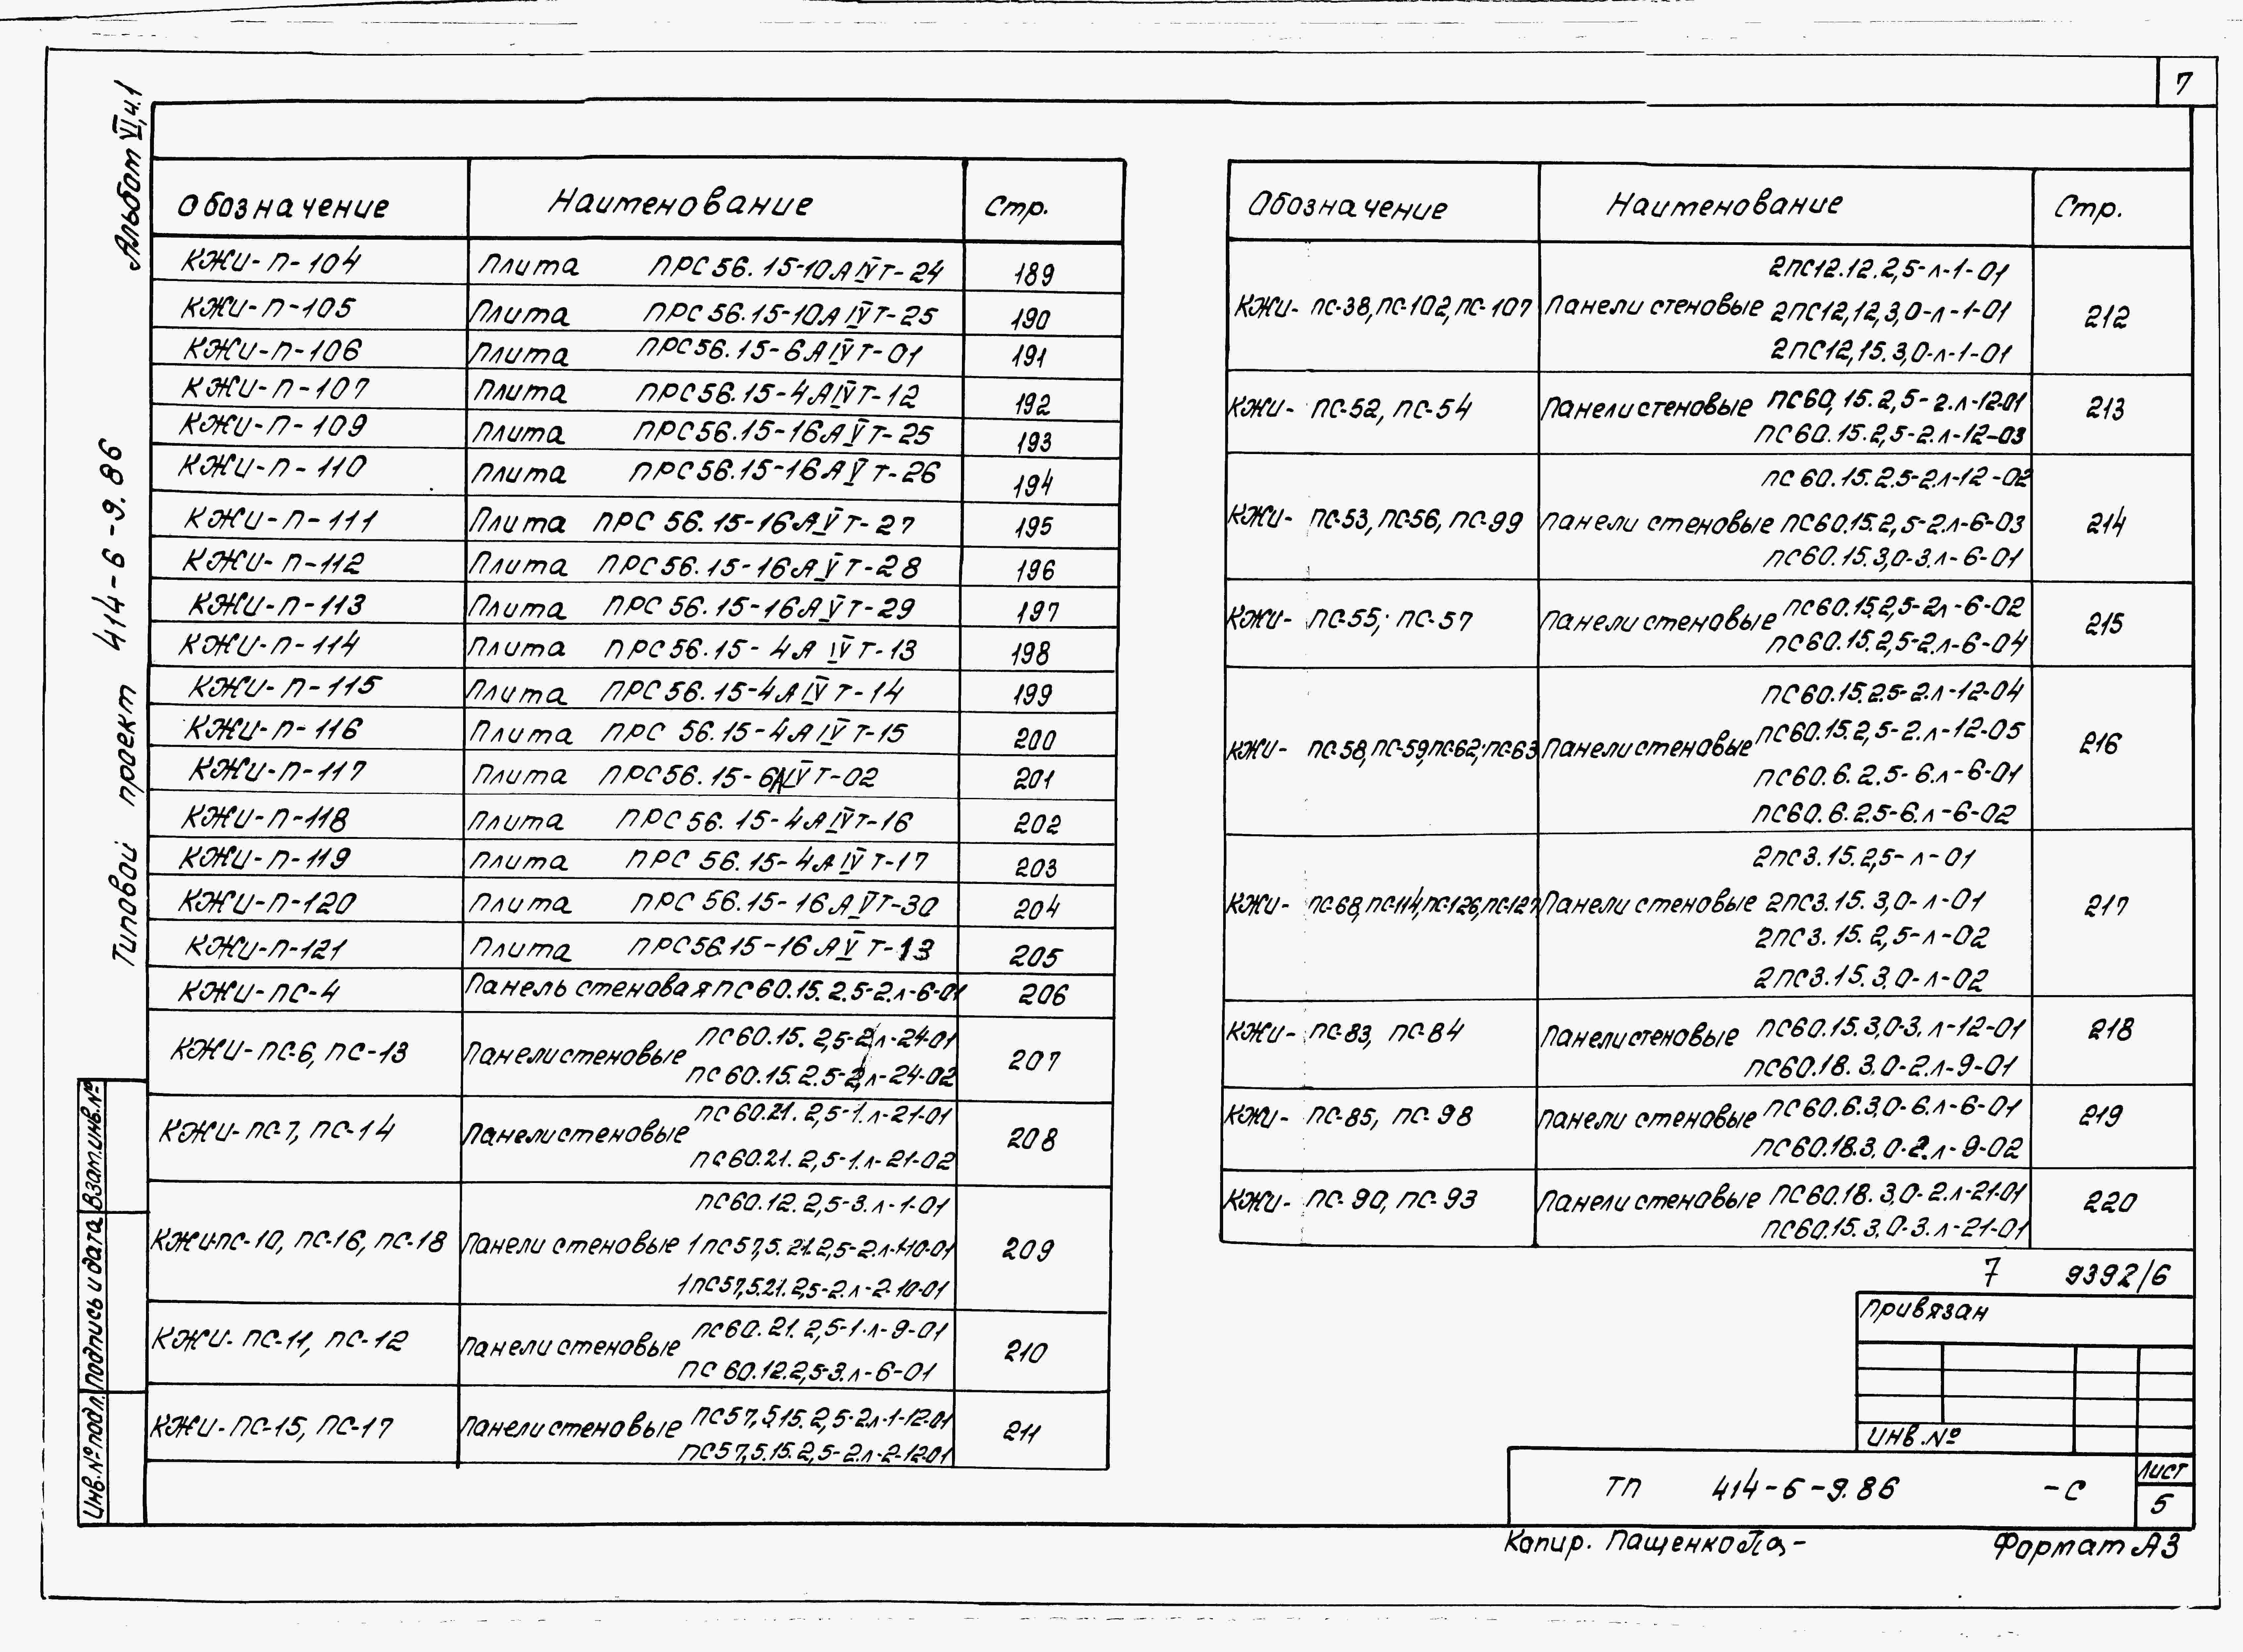 7
Альбом VI, ч.1
Типовой проект 414-6-9.86
Обозначение Наименование Стр.
КЖИ-П-104 Плита ПРС56.15-10АIVТ-24 189
КЖИ-П-105 Плита ПРС56.15-10АIVТ-25 190
КЖИ-П-106 Плита ПРС56.15-6АIVТ-01 191
КЖИ-П-107 Плита ПРС56.15-4АIVТ-12 192
КЖИ-П-109 Плита ПРС56.15-16АVТ-25 193
КЖИ-П-110 Плита ПРС56.15-16АVТ-26 194
КЖИ-П-111 Плита ПРС 56.15-16АVТ-27 195
КЖИ-П-112 Плита ПРС56.15-16АVТ-28 196
КЖИ-П-113 Плита ПРС 56.15-16АVТ-29 197
КЖИ-П-114 Плита ПРС56.15-4А IVТ-13 198
КЖИ-П-115 Плита ПРС56.15-4АIVТ-14 199
КЖИ-П-116 Плита ПРС 56.15-4АIVТ-15 200
КЖИ-П-117 Плита ПРС56.15-6АIVТ-02 201
КЖИ-П-118 Плита ПРС 56.15-4АIVТ-16 202
КЖИ-П-119 Плита ПРС 56.15-4АIVТ-17 203
КЖИ-П-120 Плита ПРС 56.15-16АVТ-30 204
КЖИ-П-121 Плита ПРС56.15-16АVТ-13 205
КЖИ-ПС-4 Панель стеновая ПС60.15.2.5-2.л-6-01 206
ПС60.15.2,5-2л-24-01
КЖИ-ПС-6, ПС-13 Панели стеновые 207
ПС60.15.2.5-2,л-24-02
ПС60.21.2,5-1.л-21-01
КЖИ-ПС-7, ПС-14 Панели стеновые 208
ПС60.21.2,5-1.л-21-02
ПС60.12.2,5-3.л-1-01
КЖИ-ПС-10, ПС-16, ПС-18 Панели стеновые 1ПС57,5.21.2,5-2.л-1-10-01 209
1ПС57,5.21.2,5-2.л-2-10-01
ПС60.21.2,5-1.л-9-01
КЖИ-ПС-11, ПС-12 Панели стеновые 210
ПС60.12.2,5-3.л-6-01
КЖИ-ПС-15, ПС-17 Панели стеновые ПС57,5.15.2,5-2л-1-12-01 211
ПС57,5.15.2,5-2.л-2-12-01
Обозначение Наименование Стр.
2ПС12.12.2,5-л-1-01
КЖИ- ПС-38, ПС-102, ПС-107 Панели стеновые 2ПС12,12,3,0-л-1-01 212
2ПС12,15.3,0-л-1-01
КЖИ- ПС-52, ПС-54 Панели стеновые ПС60,15.2,5-2.л-12-01 213
ПС60.15.2,5-2.л-12-03
ПС60.15.2.5-2.л-12-02
КЖИ- ПС-53, ПС-56, ПС-99 Панели стеновые ПС60.15.2,5-2.л-6-03 214
ПС60.15.3,0-3.л-6-01
КЖИ- ПС-55; ПС-57 Панели стеновые ПС60.15.2,5-2л-6-02 215
ПС60.15.2,5-2.л-6-04
ПС60.15.2.5-2.л-12-04
КЖИ- ПС-58, ПС-59, ПС-62; ПС-63 Панели стеновые ПС60.15.2,5-2.л-12-05 216
ПС60.6.2.5-6.л-6-01
ПС60.6.2.5-6.л-6-02
2ПС3.15.2,5-л-01
КЖИ- ПС-68, ПС-114, ПС-126, ПС-127 Панели стеновые 2ПС3.15.3,0-л-01 217
2ПС3.15.2,5-л-02
2ПС3.15.3.0-л-02
КЖИ- ПС-83, ПС-84 Панели стеновые ПС60.15.3,0-3.л-12-01 218
ПС60.18.3.0-2.л-9-01
КЖИ- ПС-85, ПС-98 Панели стеновые ПС60.6.3,0-6.л-6-01 219
ПС60.18.3.0-2.л-9-02
КЖИ- ПС-90, ПС-93 Панели стеновые ПС60.18.3,0-2.л-21-01 220
ПС60.15.3.0-3.л-21-01
7 9392/6
Привязан
Инв.№
ТП 414-6-9.86 -С
Лист
5
Копир. Пащенко
Формат А3
Взам.инв.№
Подпись и дата
Инв.№подл.